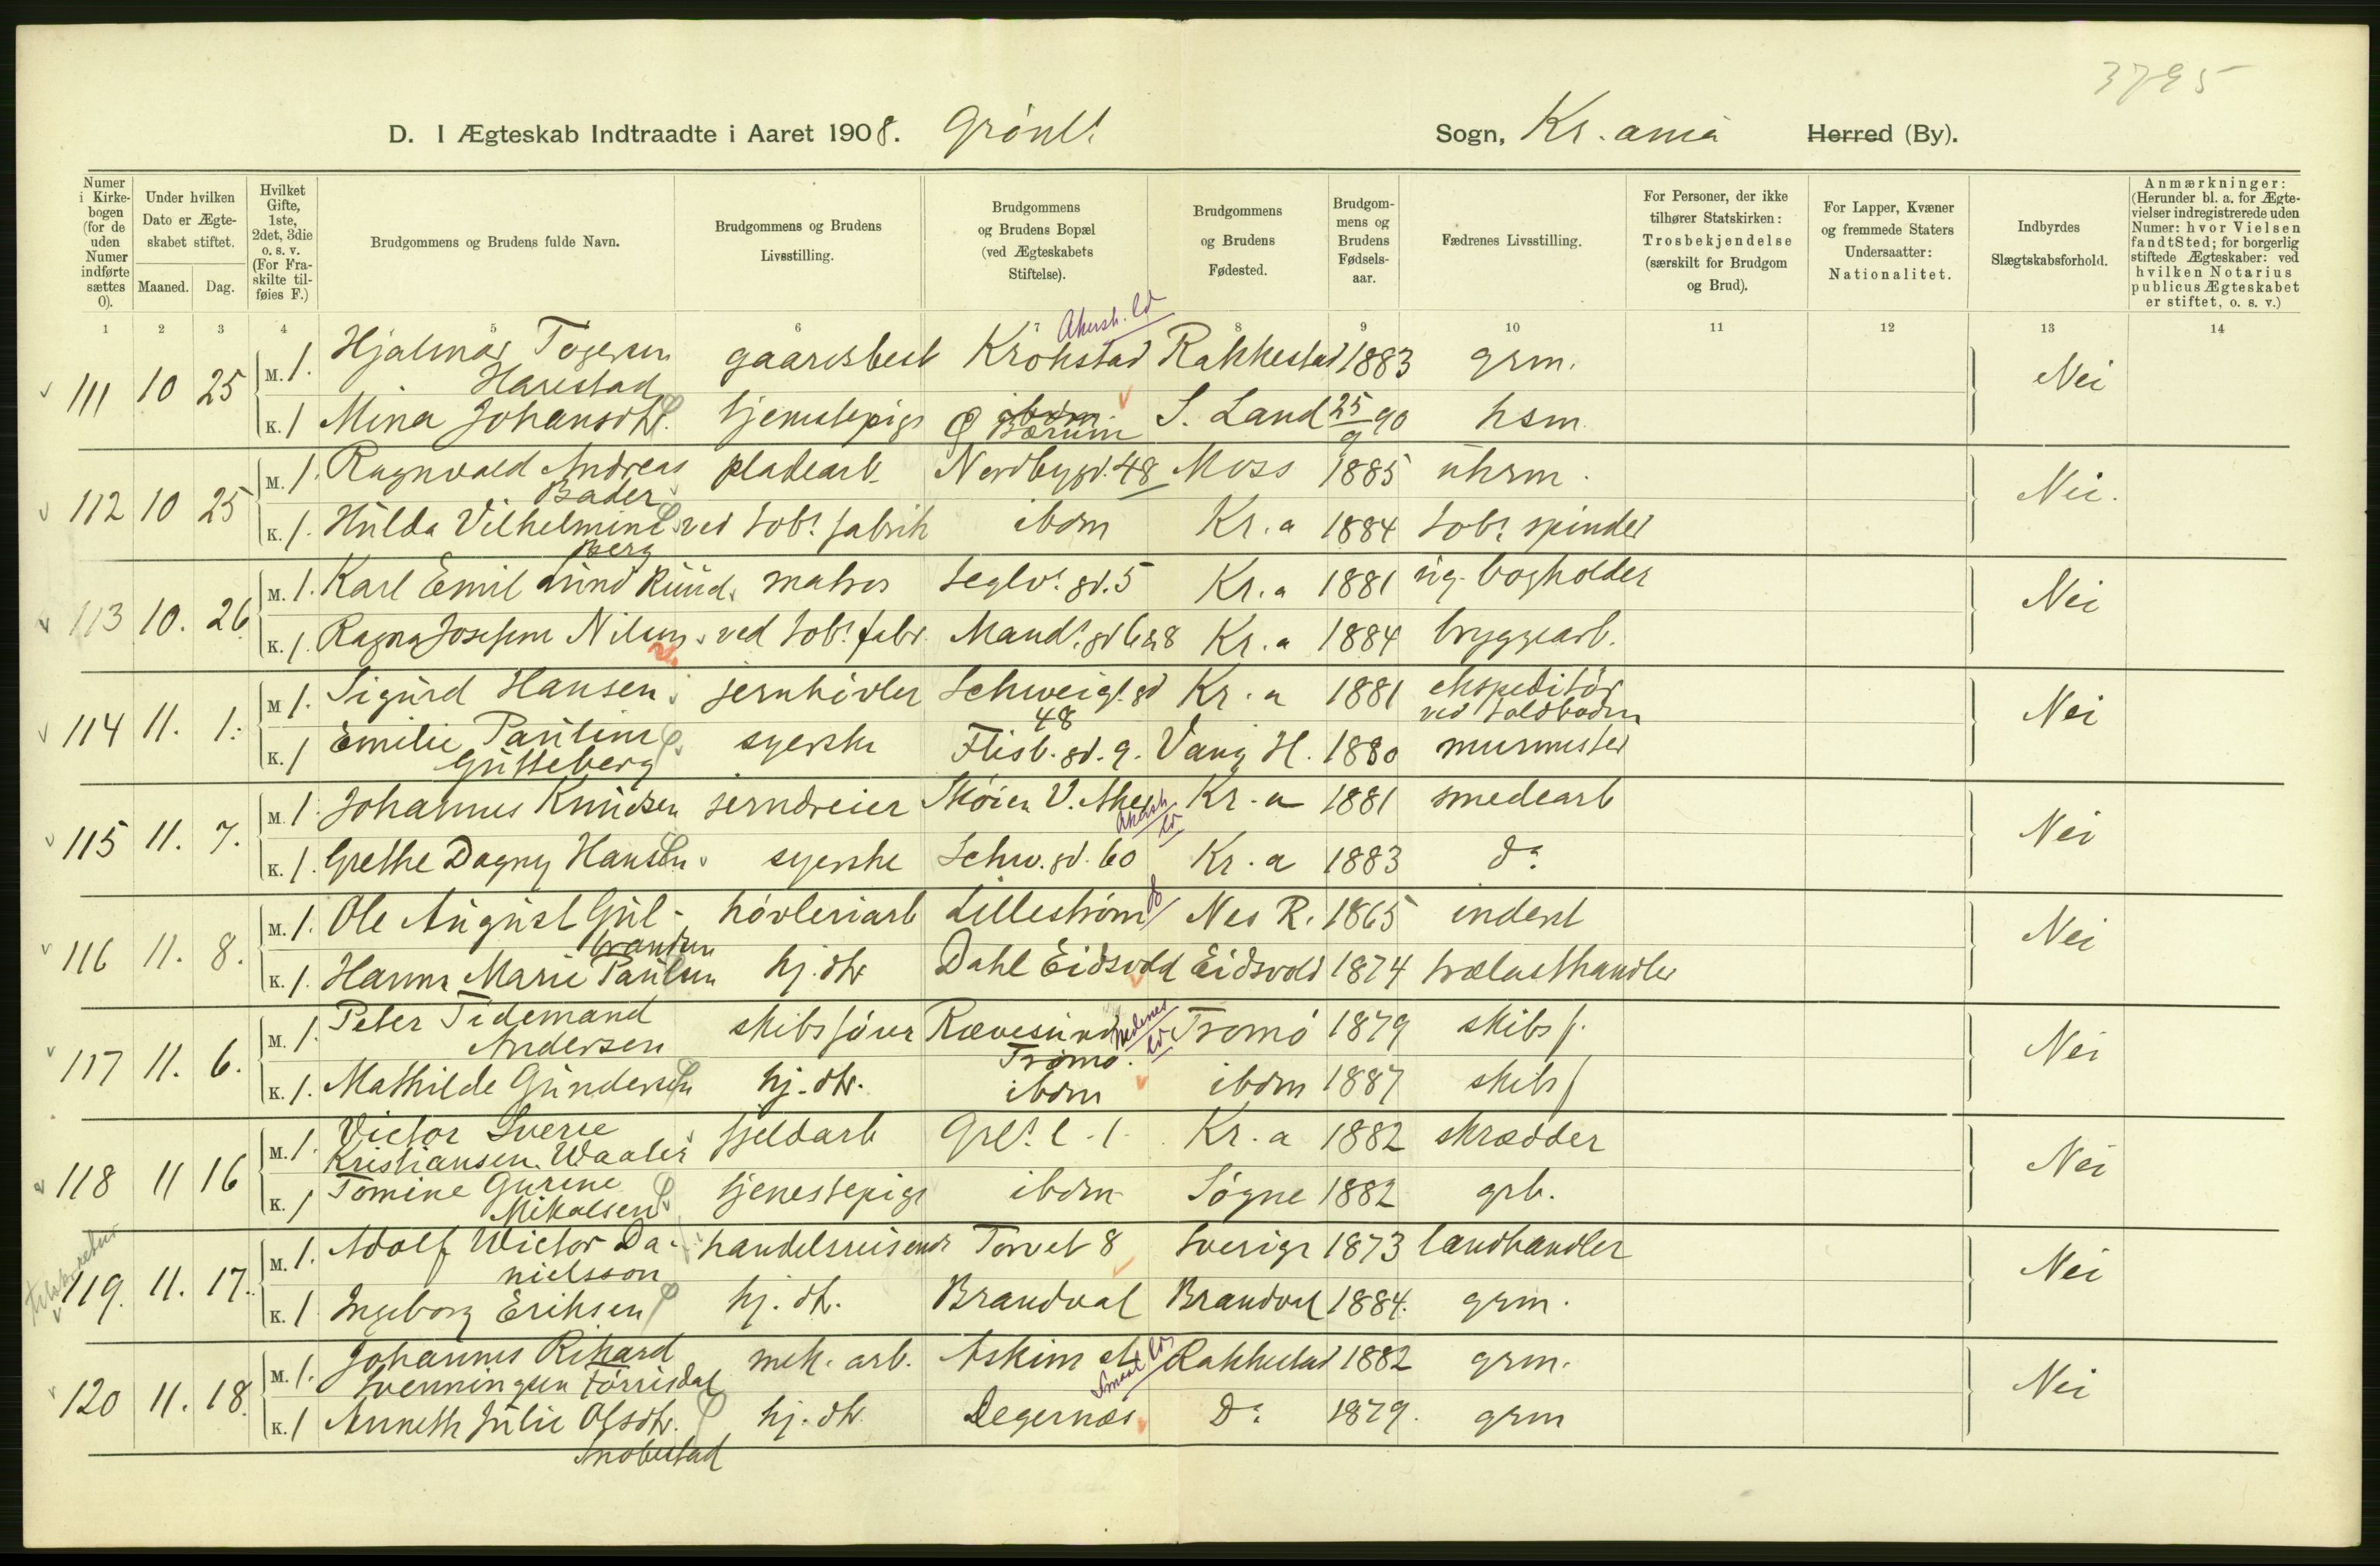 3795
D. I Ægteskab Indtraadte i Aaret 1908. Grønl. Sogn, Kr.ania Herred (By).
Numer i Kirkebogen (for de uden Numer indførte sættes 0).
Under hvilken Dato er Ægteskabet stiftet.
Maaned. Dag.
Hvilket Gifte, 1ste, 2det, 3die o. s. v. (For Fraskilte tilføies F.)
Brudgommens og Brudens fulde Navn.
Brudgommens og Brudens Livsstilling.
Brudgommens og Brudens Bopæl (ved Ægteskabets Stiftelse).
Brudgommens og Brudens Fødested.
Brudgommens og Brudens Fødselsaar.
Fædrenes Livsstilling.
For Personer, der ikke tilhører Statskirken: Trosbekjendelse (særskilt for Brudgom og Brud).
For Lapper, Kvæner og fremmede Staters Undersaatter: Nationalitet.
Indbyrdes Slægtskabsforhold.
Anmærkninger: (Herunder bl. a. for Ægtevielser indregistrerede uden Numer: hvor Vielsen fandt Sted; for borgerlig stiftede Ægteskaber: ved hvilken Notarius publicus Ægteskabet er stiftet, o. s. v.)
1 2 3 4 5 6 7 8 9 10 11 12 13 14
Akersh. ld
M. 1. Hjalmar Togersen Harestad gaardsbest Krokstad Rakkestad 1883 grm.
111 10 25 Nei
K. 1 Mina Johansdtr. tjenestepige ibdm Bærum S. Land 25/9 90 hsm
M. 1. Ragnvald Andreas Bader pladearb. Nordbygd. 48 Moss 1885 uhrm.
112 10 25 Nei.
K. 1. Hulda Vilhelmine Berg ved tob. fabrik ibdm Kr.a 1884 tob. spinder
M. 1. Karl Emil Lund Ruud. matros Teglv. gd. 5 Kr.a 1881 sig. bogholder
113 10. 26 Nei
K. 1. Ragna Josefine Nilsen ved tob. fabr. Mands. gd 6 a 8 Kr.a 1884 bryggearb.
M 1. Sigurd Hansen jernhøvler Schweig. gd 48 Kr.a 1881 ekspeditør ved toldboden
114 11. 1. Nei
K. 1 Emilie Pauline Gutteberg syerske Flisb. gd. 9. Vang H. 1880 murmester
M. 1. Johannes Knudsen jerndreier Møien V. Aker Kr.a 1881 smedearb
Akersh. ld
115 11. 7. Nei
K. 1. Grethe Dagny Hansen syerske Schw. gd. 60 Kr.a 1883 do
M. 1. Ole August Gulbrandsen høvleriarb Lillestrøm do Nes R. 1865 inderst
116 11. 8. Nei
K. 1. Hanna Marie Paulsen hj. dtr Dahl Eidsvold Eidsvold 1874 trælasthandler
M. 1. Peter Tidemand Andersen skibsfører Rævesund Tromø Nedenes ld Tromø 1879 skibsf.
117 11. 6. Nei
K. 1. Mathilde Gundersen hj. dtr. ibdm ibdm 1887 skibsf
M. 1. Victor Sverre Kristiansen Waaler fjeldarb Grl. l. 1. Kr.a 1882 skrædder
118 11 16 Nei
K. 1 Tomine Gurine Mikalsen tjenestepige ibdm Søgne 1882 grb.
M. 1. Adolf Wictor Danielsson handelsreisende Torvet 8 Sverige 1873 landhandler
119. 11. 17. Nei
K. 1 Ingeborg Eriksen hj. dtr. Brandval Brandval 1884. grm.
M. 1. Johannes Rikard Svenningsen Førrisdal mek. arb. Askim st Smaal. ld Rakkestad 1882 grm.
120 11. 18. Nei
K. 1 Anneth Julie Olsdtr. Snobestad hj. dtr. Degernæs Do 1879. grm